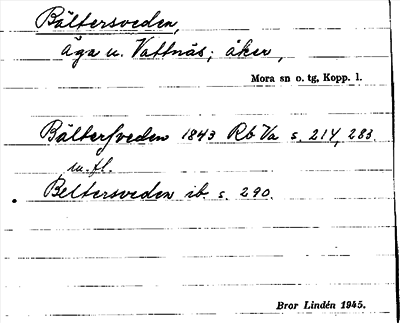 Bältersveden,
äga u. Vattnäs; åker,
Mora sn o. tg, Kopp. l.
Bälterſveden 1843 Rb Va s. 214, 283.
m. fl.
Beltersveden ib. s. 290.
Bror Lindén 1945.